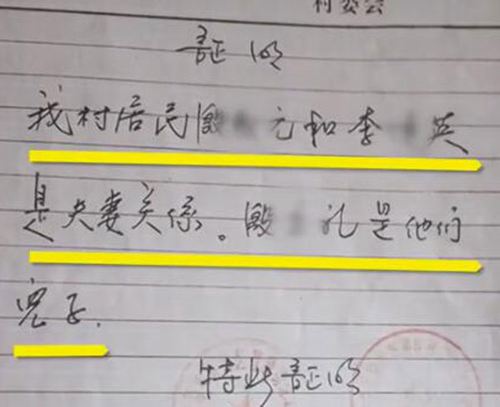 村委会
証明
我村居民殷 元和李 英
是夫妻关係。殷 礼是他们
児子.
特此証明